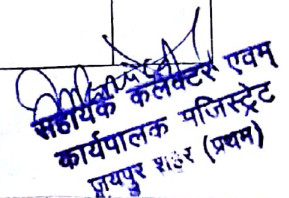 सहायक कलेक्टर एवम्
कार्यपालक मजिस्ट्रेट
जयपुर शहर (प्रथम)